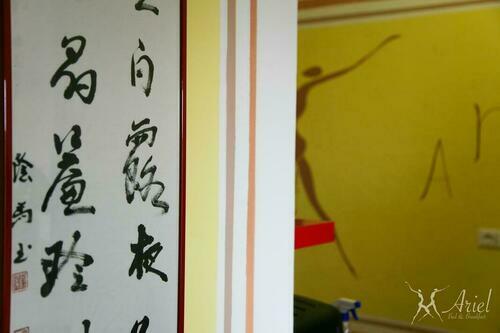 白露夜
晶簾玲
馬玉
A r
Ariel
Bed & Breakfast